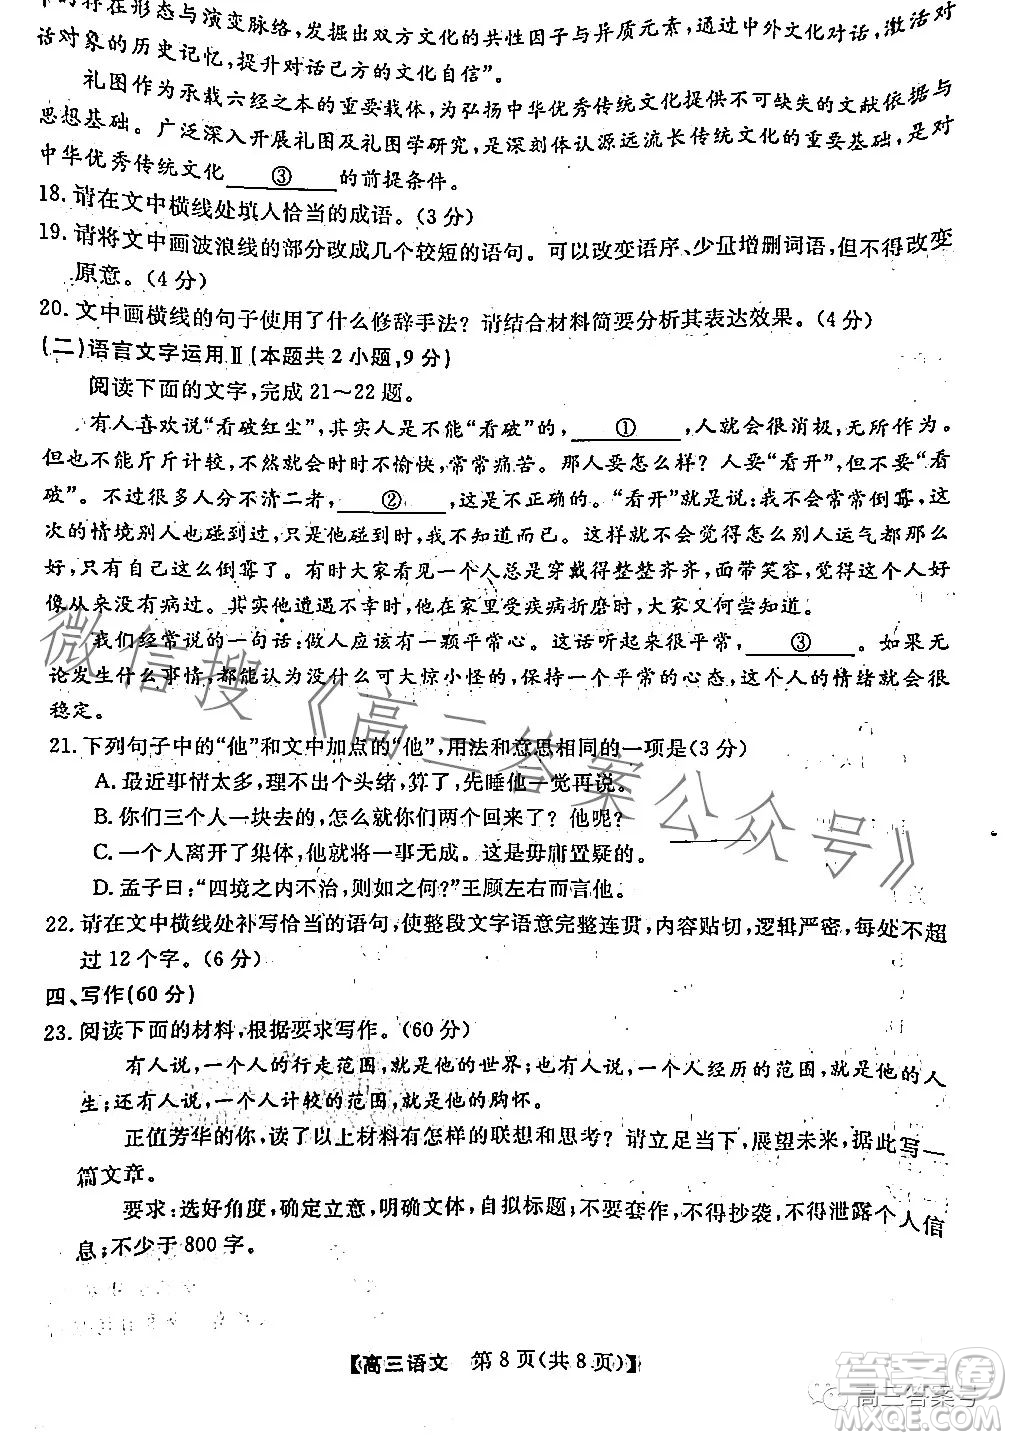 下的存在形态与演变脉络，发掘出双方文化的共性因子与异质元素，促成中外文化对话，激活对
话对象的历史记忆，提升对话己方的文化自信”。
礼图作为承载六经之本的重要载体，为弘扬中华优秀传统文化提供不可缺失的文献依据与
思想基础。广泛深入开展礼图及礼图学研究，是深刻体认源远流长传统文化的重要基础，是对
中华优秀传统文化 ③ 的前提条件。
18. 请在文中横线处填人恰当的成语。(3分)
19. 请将文中画波浪线的部分改成几个较短的语句。可以改变语序、少量增删词语，但不得改变
原意。(4分)
20. 文中画横线的句子使用了什么修辞手法？请结合材料简要分析其表达效果。(4分)
(二)语言文字运用Ⅱ(本题共2小题,9分)
阅读下面的文字,完成21～22题。
有人喜欢说“看破红尘”,其实人是不能“看破”的, ① ,人就会很消极,无所作为。
但也不能斤斤计较,不然就会时时不愉快,常常痛苦。那人要怎么样？人要“看开”,但不要“看
破”。不过很多人分不清二者, ② ,这是不正确的。“看开”就是说:我不会常常倒霉,这
次的情境别人也碰到过,只是他碰到时,我不知道而已。我就不会觉得怎么别人运气都那么
好,只有自己这么倒霉了。有时大家看见一个人总是穿戴得整整齐齐,面带笑容,这个人好
像从来没有病过。其实他遭遇不幸时,他在家里受疾病折磨时,大家不一定会知道。
我们经常说的一句话:做人应该有一颗平常心。这话听起来很平常, ③ 。如果无
论发生什么事情,都能认为没什么可大惊小怪的,保持一个平常的心态,这个人的情绪就会很
稳定。
21. 下列句子中的“他”和文中加点的“他”,用法和意思相同的一项是(3分)
A. 最近事情太多,理不出个头绪,算了,先睡他一觉再说。
B. 你们三个人一块去的,怎么就你们两个回来了？他呢？
C. 一个人离开了集体,他就将一事无成。这是毋庸置疑的。
D. 孟子曰:“四境之内不治,则如之何?”王顾左右而言他。
22. 请在文中横线处补写恰当的语句,使整段文字语意完整连贯,内容贴切,逻辑严密,每处不超
过12个字。(6分)
四、写作(60分)
23. 阅读下面的材料,根据要求写作。(60分)
有人说,一个人的行走范围,就是他的世界;也有人说,一个人经历的范围,就是他的人
生;还有人说,一个人计较的范围,就是他的胸怀。
正值芳华的你,读了以上材料有怎样的联想和思考？请立足当下,展望未来,据此写一
篇文章。
要求:选好角度,确定立意,明确文体,自拟标题;不要套作,不得抄袭,不得泄露个人信
息;不少于800字。
【高三语文 第8页(共8页)】
微信搜《高三答案公众号》
高三答案号
答案圈
MXQE.COM